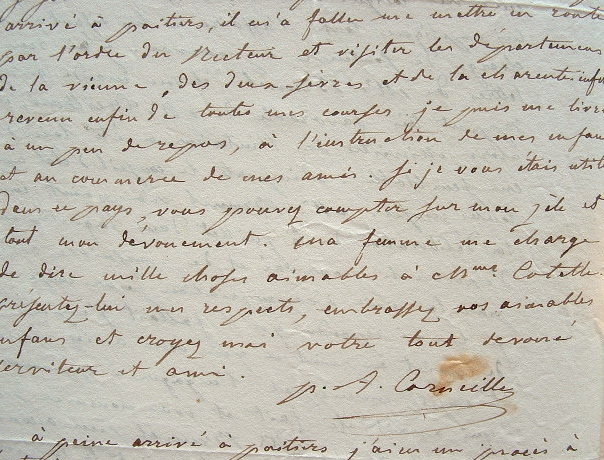 arrivé à poitiers, il m'a fallu me mettre en route
par l'ordre du Recteur et visiter les départemens
de la vienne, des deux-sèvres et de la charente infre
revenu enfin de toutes mes courses je puis me livre
à un peu de repos, à l'instruction de mes enfans
et au commerce de mes amis. Si je vous étais utile
dans ce pays, vous pouvez compter sur mon zèle et
tout mon dévouement. ma femme me charge
de dire mille choses aimables à Mme. Cotelle.
présentez-lui mes respects, embrassez vos aimables
enfans et croyez moi votre tout dévoué
serviteur et ami.
p. A. Corneille
à peine arrivé à poitiers j'ai eu un procès à